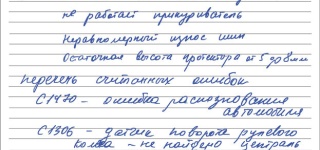 не работает прикуриватель
Неравномерный износ шин
Остаточная высота протектора от 5 до 8мм
перечень считанных ошибок
С1470 – ошибка распознования
автомобиля
С1306 – датчик поворота рулевого
колеса – не найдено централь